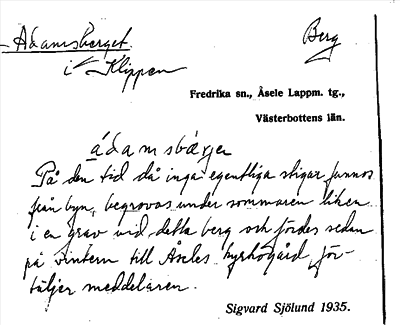 Adamsberget.
i Klippen
Berg
Fredrika sn., Åsele Lappm. tg.,
Västerbottens län.
ádamsbærjen
På den tid då inga egentliga stigar funnos
från byn, begrovos under sommaren liken
i en grav vid detta berg och fördes sedan
på vintern till Åseles kyrkogård, för-
täljer meddelaren.
Sigvard Sjölund 1935.